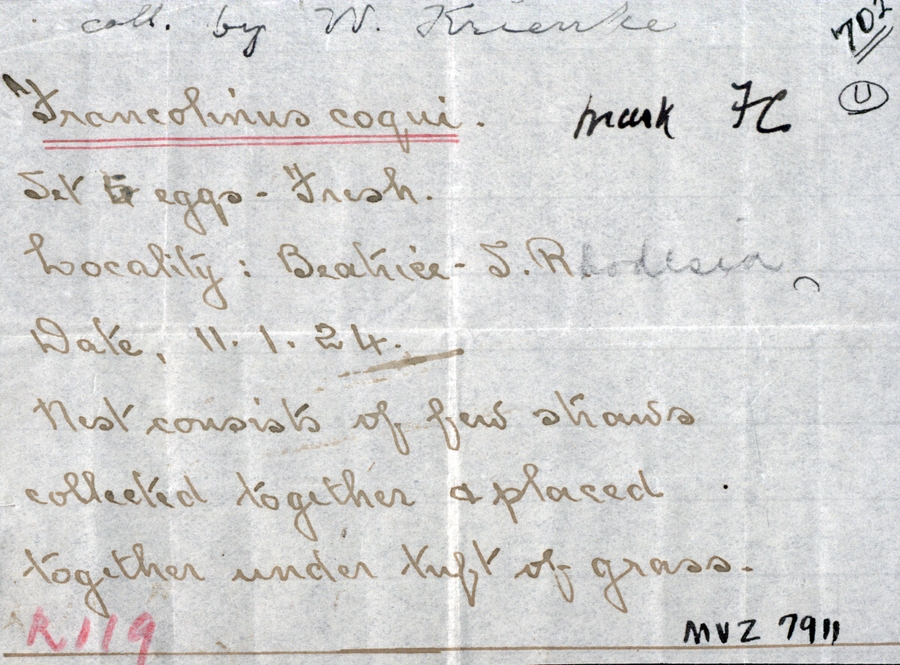 coll. by W. Krienke
702
U
Francolinus coqui. mark FC
Set 5 eggs - Fresh.
Locality: Beatrice - S. Rhodesia
Date, 11. 1. 24.
Nest consists of few straws
collected together & placed
together under tuft of grass.
R119
MVZ 7911